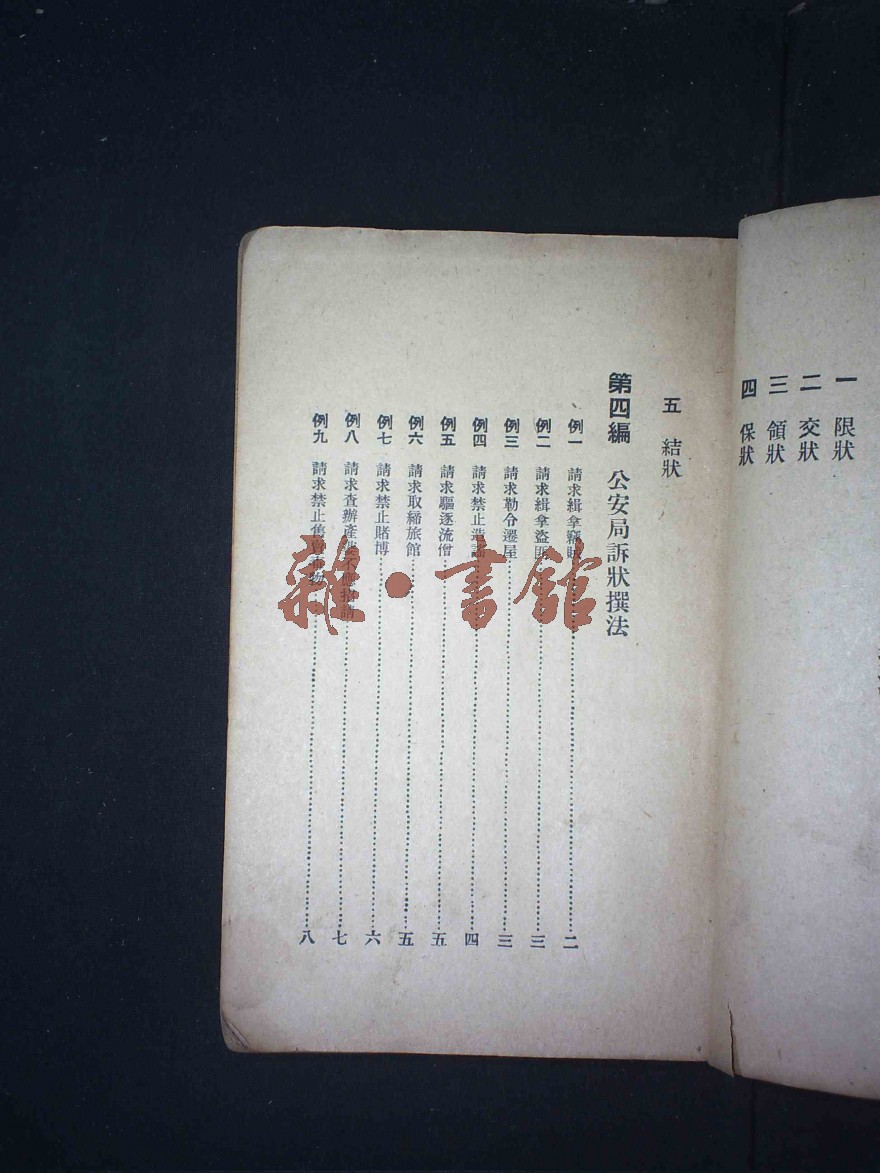 一 限狀
二 交狀
三 領狀
四 保狀
五 結狀
第四編 公安局訴狀撰法
例一 請求緝拿竊賊……二
例二 請求緝拿盜匪……三
例三 請求勒令遷屋……三
例四 請求禁止造謠……四
例五 請求驅逐流僧……五
例六 請求取締旅館……五
例七 請求禁止賭博……六
例八 請求查辦產婆不應招請……七
例九 請求禁止售賣……八
雜·書館